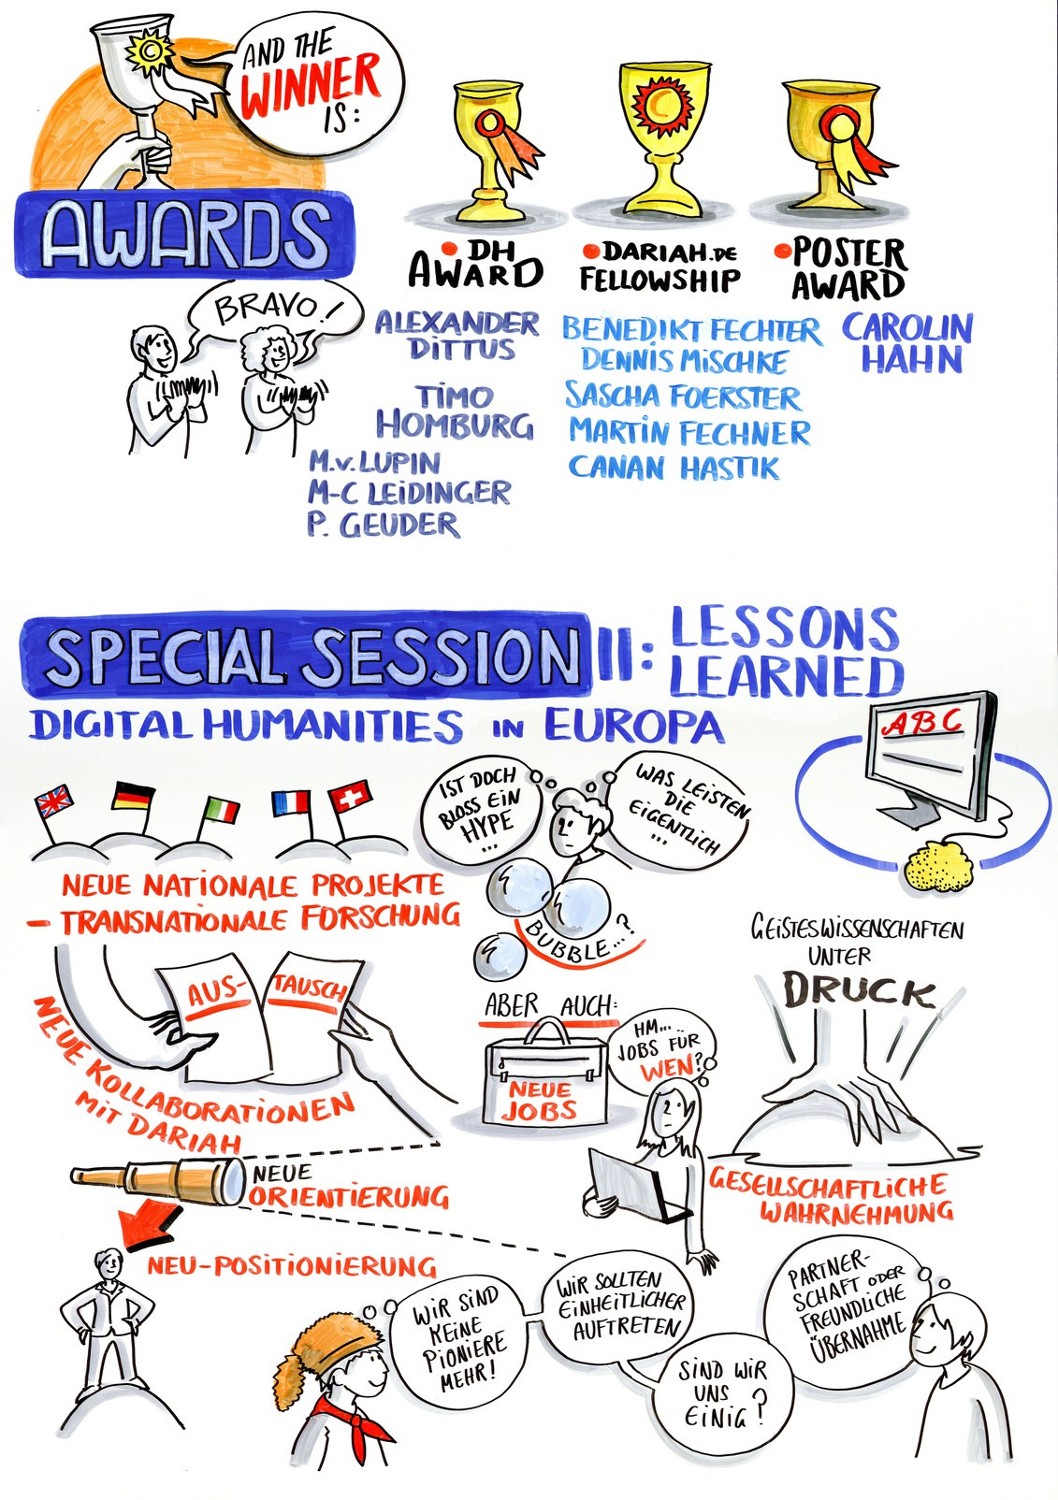 AND THE
WINNER
IS:
AWARDS
BRAVO!
• DH
AWARD
ALEXANDER
DITTUS
TIMO
HOMBURG
M.v. LUPIN
M-C LEIDINGER
P. GEUDER
• DARIAH.DE
FELLOWSHIP
BENEDIKT FECHTER
DENNIS MISCHKE
SASCHA FOERSTER
MARTIN FECHNER
CANAN HASTIK
• POSTER
AWARD
CAROLIN
HAHN
SPECIAL SESSION II: LESSONS
LEARNED
DIGITAL HUMANITIES IN EUROPA
ABC
NEUE NATIONALE PROJEKTE
– TRANSNATIONALE FORSCHUNG
IST DOCH
BLOSS EIN
HYPE
...
WAS LEISTEN
DIE
EIGENTLICH
...
BUBBLE...?
AUS-
TAUSCH
NEUE KOLLABORATIONEN
MIT DARIAH
ABER AUCH:
NEUE
JOBS
HM.....
JOBS FÜR
WEN?
GEISTESWISSENSCHAFTEN
UNTER
DRUCK
GESELLSCHAFTLICHE
WAHRNEHMUNG
NEUE
ORIENTIERUNG
NEU-POSITIONIERUNG
WIR SIND
KEINE
PIONIERE
MEHR!
WIR SOLLTEN
EINHEITLICHER
AUFTRETEN
SIND WIR
UNS
EINIG?
PARTNER-
SCHAFT ODER
FREUNDLICHE
ÜBERNAHME